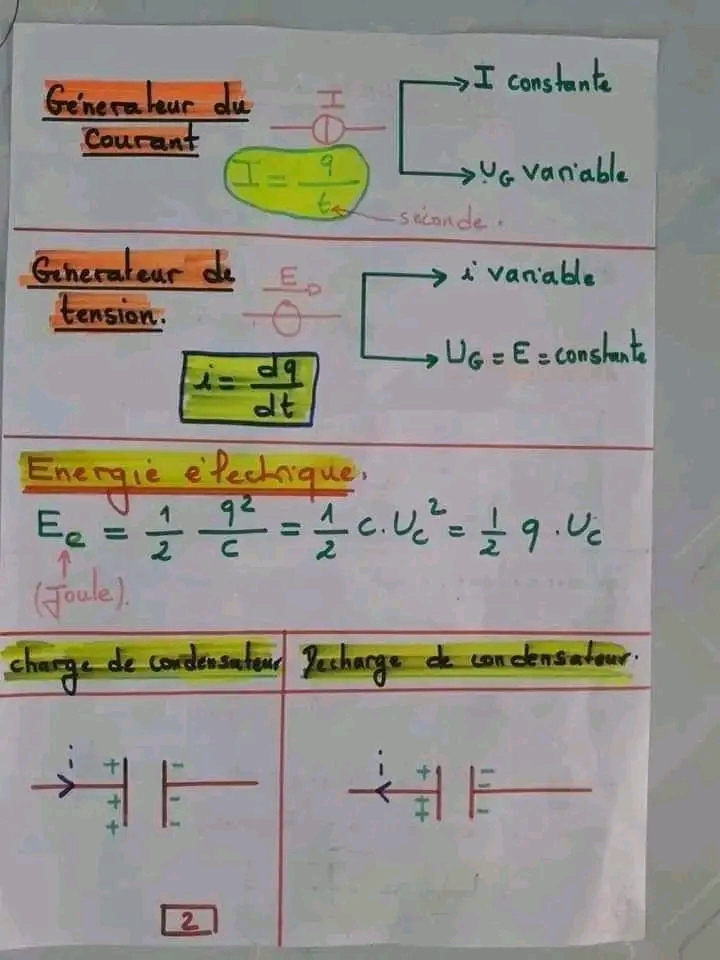 Génerateur du
Courant
I
I = q/t
seconde.
I constante
UG variable
Génerateur de
tension.
E
i = dq/dt
i variable
UG = E = constante
Energie électrique.
Ee = 1/2 q²/c = 1/2 c.Uc² = 1/2 q.Uc
(Joule).
charge de condensateur
Décharge de condensateur.
i
+ + +
- - -
i
+ + +
- - -
2